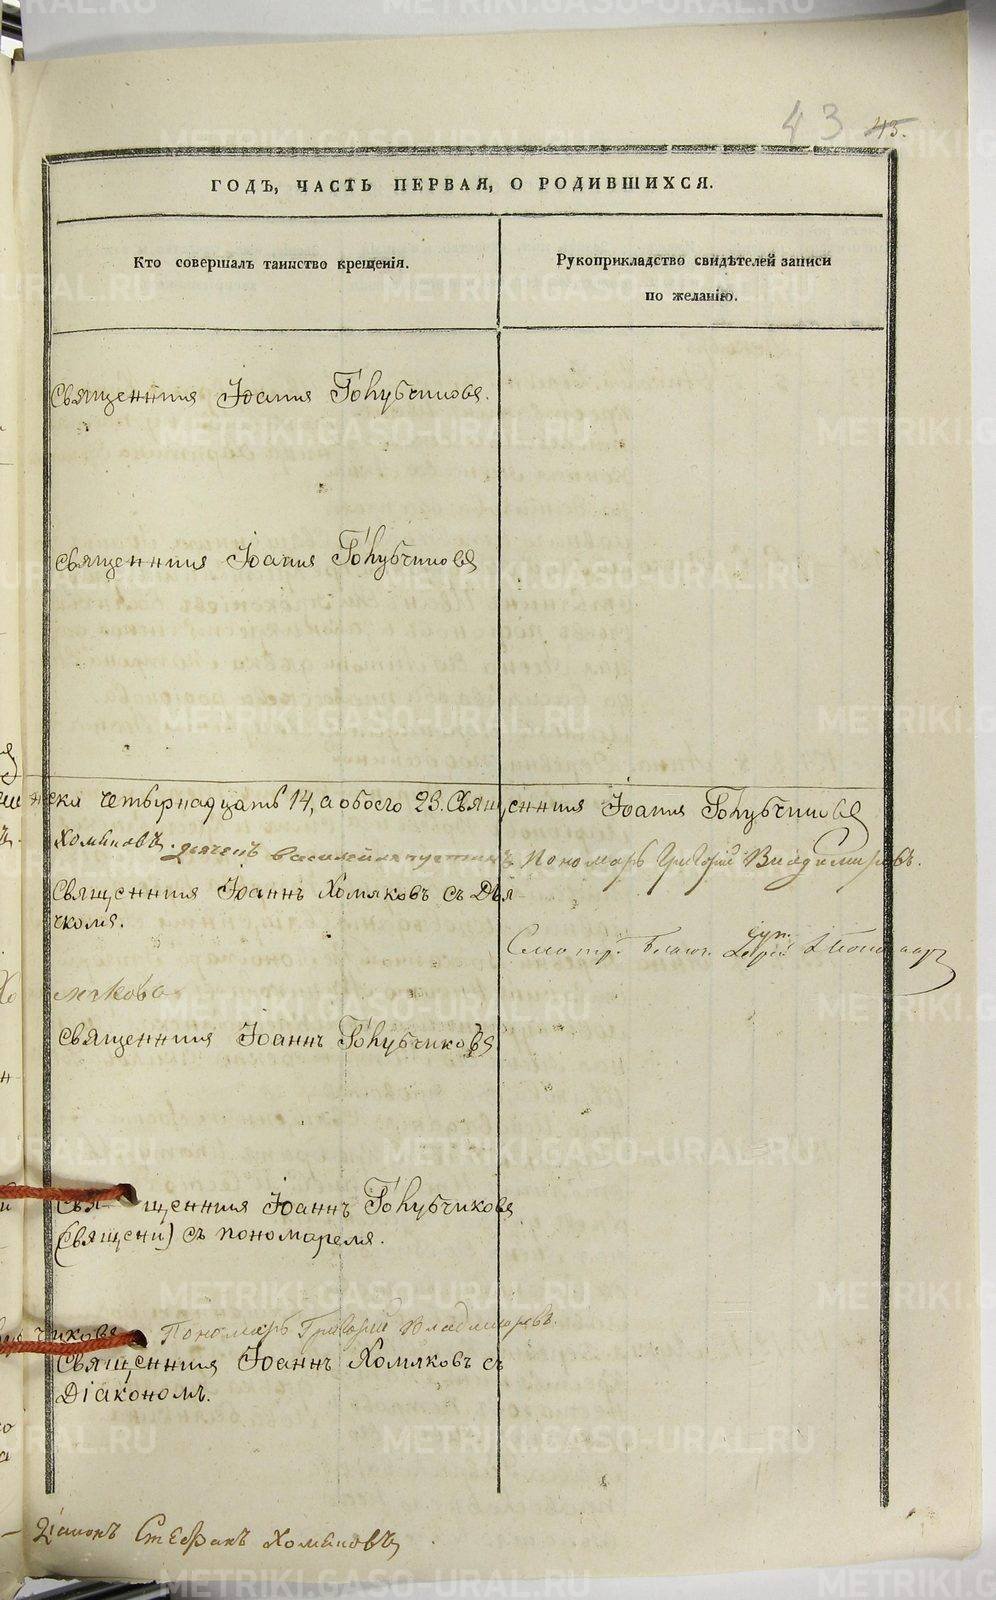 43 45.
ГОДЪ, ЧАСТЬ ПЕРВАЯ, О РОДИВШИХСЯ.
Кто совершалъ таинство крещенія.
Рукоприкладство свидѣтелей записи
по желанію.
Священникъ Іоаннъ Голубчиковъ.
Священникъ Іоаннъ Голубчиковъ
нска четырнадцать 14, а обоего 23. Священникъ Іоаннъ Голубчиковъ
Хомяковъ. дьячекъ василей Пономарь Григорій Владимировъ.
Священникъ Іоаннъ Хомяковъ съ Дья-
чкомъ.
Смотр. Благоч.
Священникъ Іоаннъ Голубчиковъ
Священникъ Іоаннъ Голубчиковъ
(Священи) съ пономаремъ.
чиковъ Пономарь Григорій Владимировъ.
Священникъ Іоаннъ Хомяковъ съ
Діакономъ.
Діаконъ Стефанъ Хомяковъ
METRIKI.GASO-URAL.RU